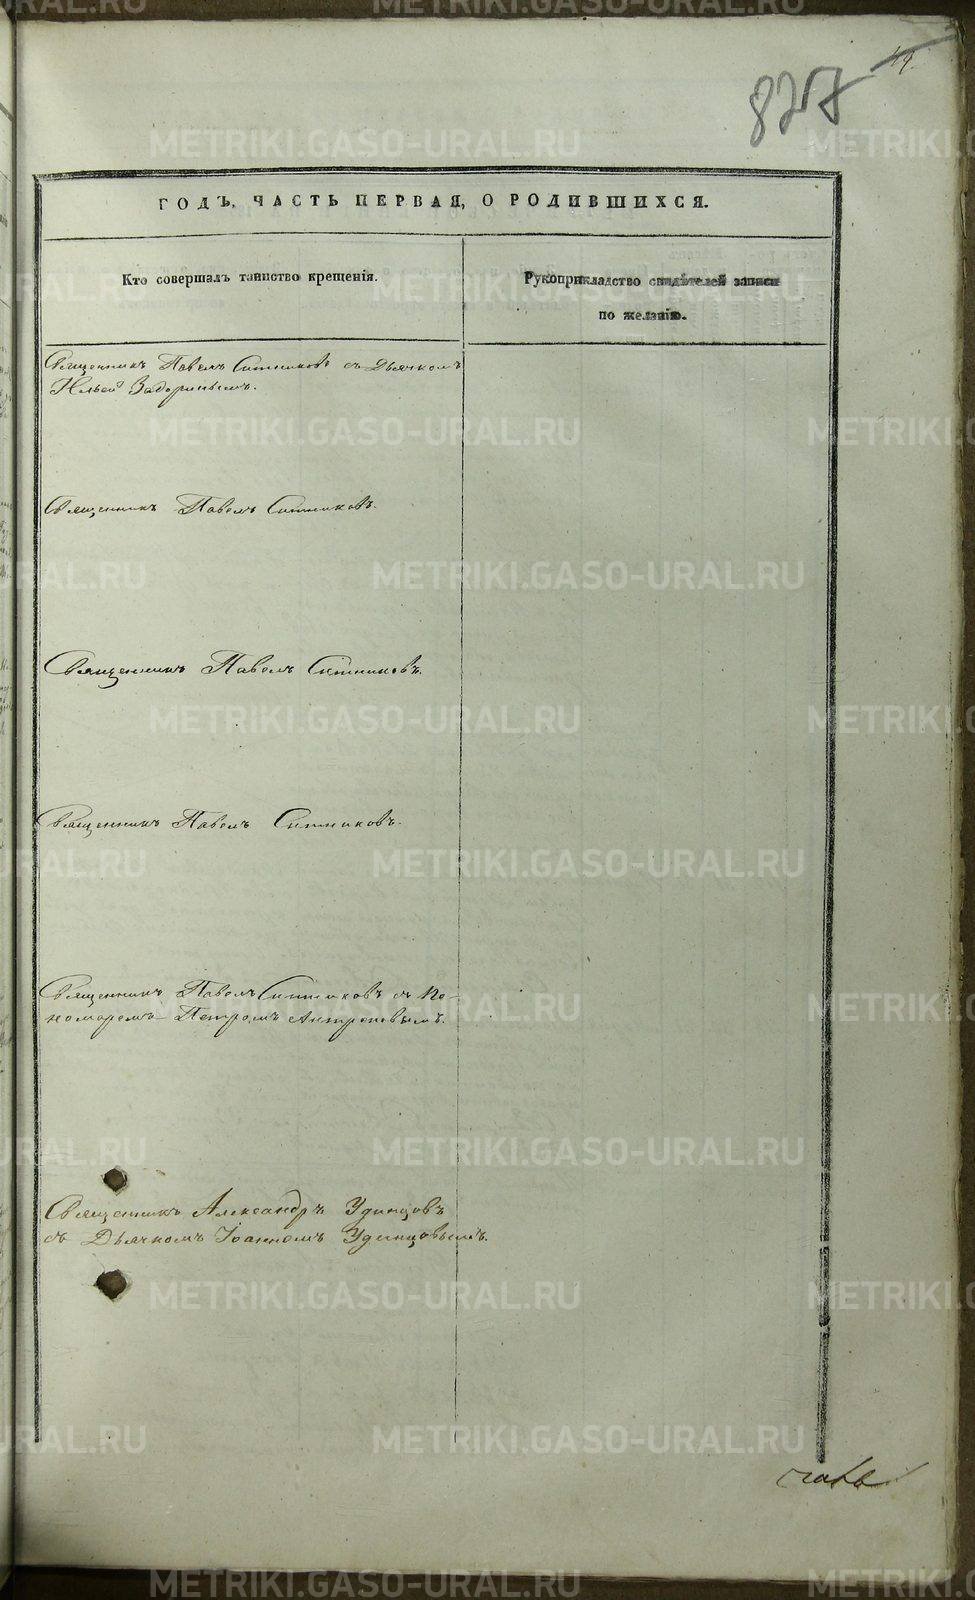 827
49.
ГОДЪ, ЧАСТЬ ПЕРВАЯ, О РОДИВШИХСЯ.
Кто совершалъ таинство крещенія.
Рукоприкладство свидѣтелей записи
по желанію.
Священникъ Павелъ Ситниковъ съ Дьячкомъ
Ильей Задоринымъ.
Священникъ Павелъ Ситниковъ.
Священникъ Павелъ Ситниковъ.
Священникъ Павелъ Ситниковъ.
Священникъ Павелъ Ситниковъ съ По-
номаремъ Петромъ Антроповымъ.
Священникъ Александръ Удинцовъ
съ Дьячкомъ Іоанномъ Удинцовымъ.
METRIKI.GASO-URAL.RU